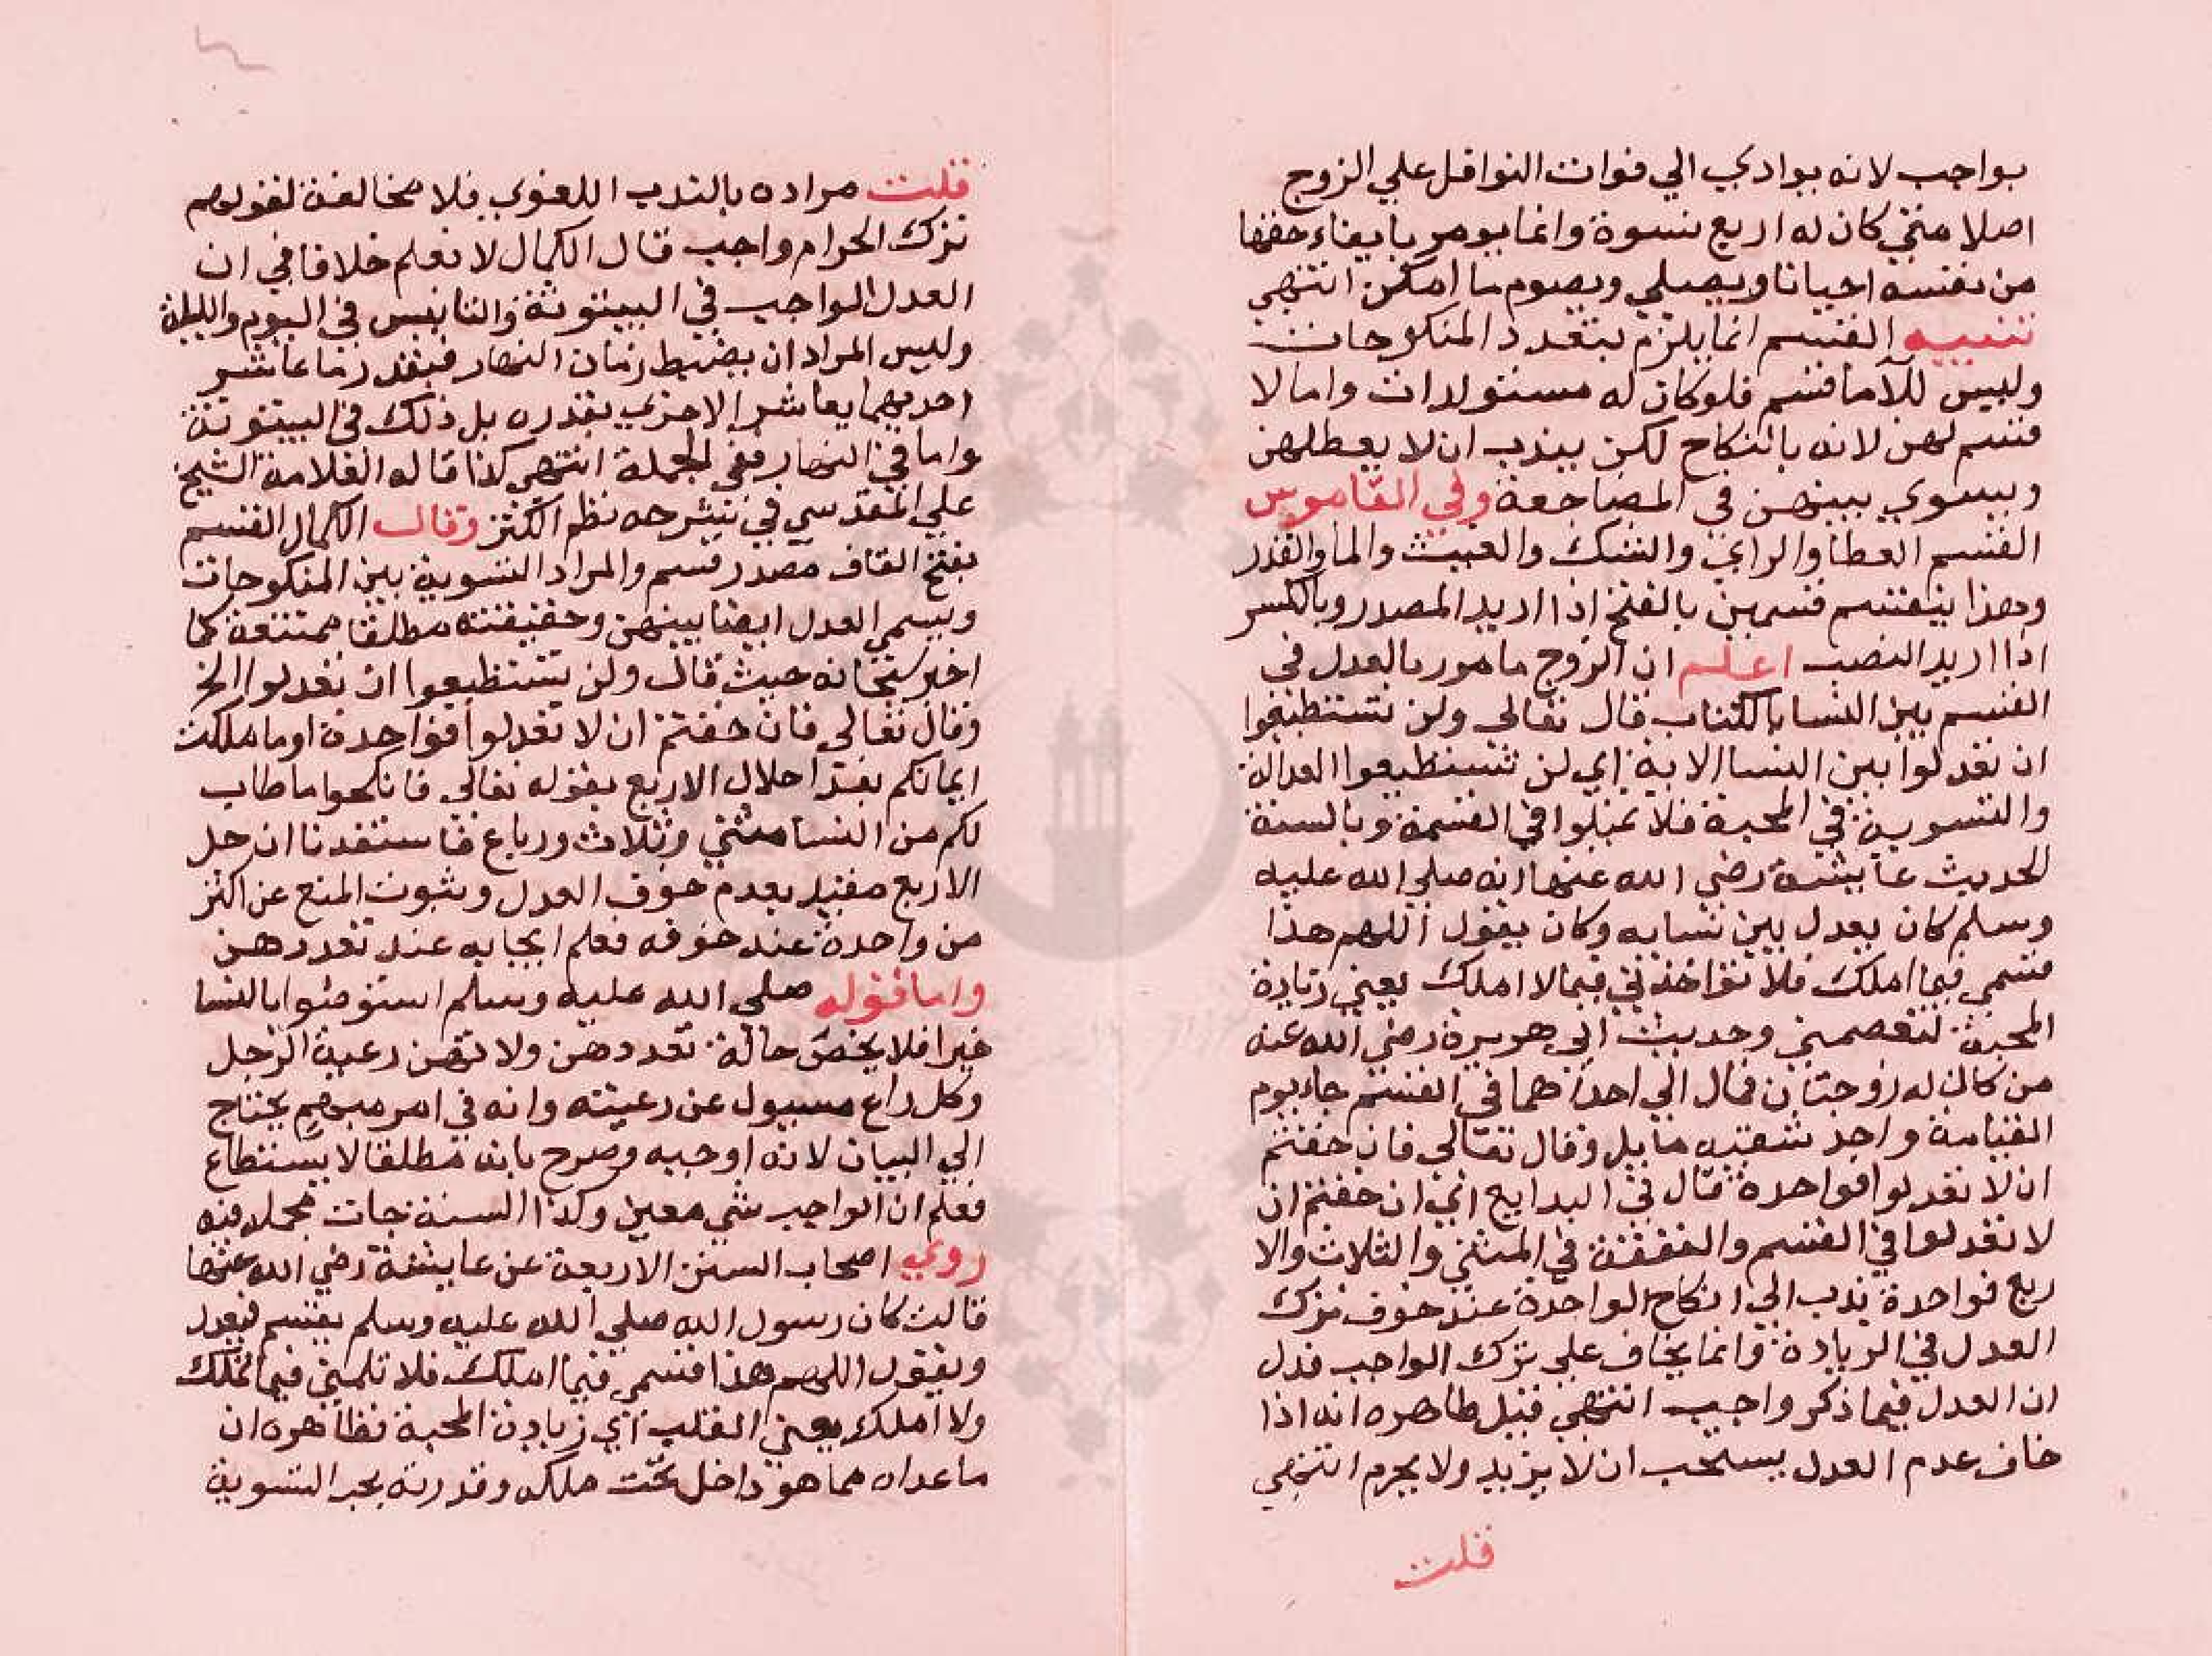 بواجب لانه يوادي الي فوات النوافل علي الزوج
اصلا متي كان له اربع نسوة وانما يومر بايفاء حقها
من نفسه احيانا ويصلي ويصوم ما امكن انتهي
تنبيه القسم انما يلزم بتعدد المنكوحات
وليس للآما قسم فلو كان له مستولدات واما لا
قسم لهن لانه بالنكاح لكن يندب ان لا يعطلهن
ويسوي بينهن في المضاجعة وفي القاموس
القسم العطا والراي والشك والغيث والما والقدر
وهذا ينقسم قسمين بالفتح اذا اريد المصدر وبالكسر
اذا اريد النصب اعلم ان الزوج مامور بالعدل في
القسم بين النسا بالكتاب قال تعالي ولن تستطيعوا
ان تعدلوا بين النسا الاية اي لن تستطيعوا العدالة
والتسوية في المحبة فلا تميلوا في القسمة وبالسنة
لحديث عايشة رضي الله عنها انه صلي الله عليه
وسلم كان يعدل بين نسايه وكان يقول اللهم هذا
قسمي فيما املك فلا تواخذني فيما لا املك يعني زيادة
المحبة لبعضهن وحديث ابي هريرة رضي الله عنه
من كان له زوجتان فمال الي احداهما في القسم جاء يوم
القيامة واحد شقيه مايل وقال تعالي فان خفتم
ان لا تعدلوا فواحدة قال في البدايع اي ان خفتم ان
لا تعدلوا في القسم والنفقة في المثني والثلاث والا
ربع فواحدة ندب الي انكاح الواحدة عند خوف ترك
العدل في الزيادة وانما يخاف علي ترك الواجب فدل
ان العدل فيما ذكر واجب انتهي قيل ظاهره انه اذا
خاف عدم العدل يستحب ان لا يزيد ولا يحرم انتهي
قلت
قلت مراده بالندب اللغوي فلا مخالفة لقولهم
ترك الحرام واجب قال الكمال لا نعلم خلافا في ان
العدل الواجب في البيتوتة والتانيس في اليوم والليلة
وليس المراد ان يضبط زمان النهار فبقدر ما عاشر
احديهما يعاشر الاخري بقدره بل ذلك في البيتوتة
واما في النهار ففي الجملة انتهي كذا قاله العلامة الشيخ
علي المقدسي في شرحه نظم الكنز وقال الكمال القسم
بفتح القاف مصدر قسم والمراد التسوية بين المنكوحات
ويسمي العدل ايضا بينهن وحقيقته مطلقا ممتنعة كما
اخبر سبحانه حيث قال ولن تستطيعوا ان تعدلوا الخ
وقال تعالي فان خفتم ان لا تعدلوا فواحدة او ما ملكت
ايمانكم بعد احلال الاربع بقوله تعالي فانكحوا ما طاب
لكم من النسا مثني وثلاث ورباع فاستفدنا ان حل
الاربع مقيد بعدم خوف العدل وثبوت المنع عن اكثر
من واحدة عند خوفه فعلم ايجابه عند تعددهن
واما قوله صلي الله عليه وسلم استوصوا بالنسا
خيرا فلا يخص حالة تعددهن ولانهن رعية الرجل
وكل راع مسيول عن رعيته وانه في امر مبهم يحتاج
الي البيان لانه اوجبه وصرح بانه مطلقا لا يستطاع
فعلم ان الواجب شي معين وكذا السنة جات مجملة فيه
روي اصحاب السنن الاربعة عن عايشة رضي الله عنها
قالت كان رسول الله صلي الله عليه وسلم يقسم فيعدل
ويقول اللهم هذا قسمي فيما املك فلا تلمني فيما تملك
ولا املك يعني القلب اي زيادة المحبة فظاهره ان
ما عداه مما هو داخل تحت ملكه وقدرته يجب التسوية